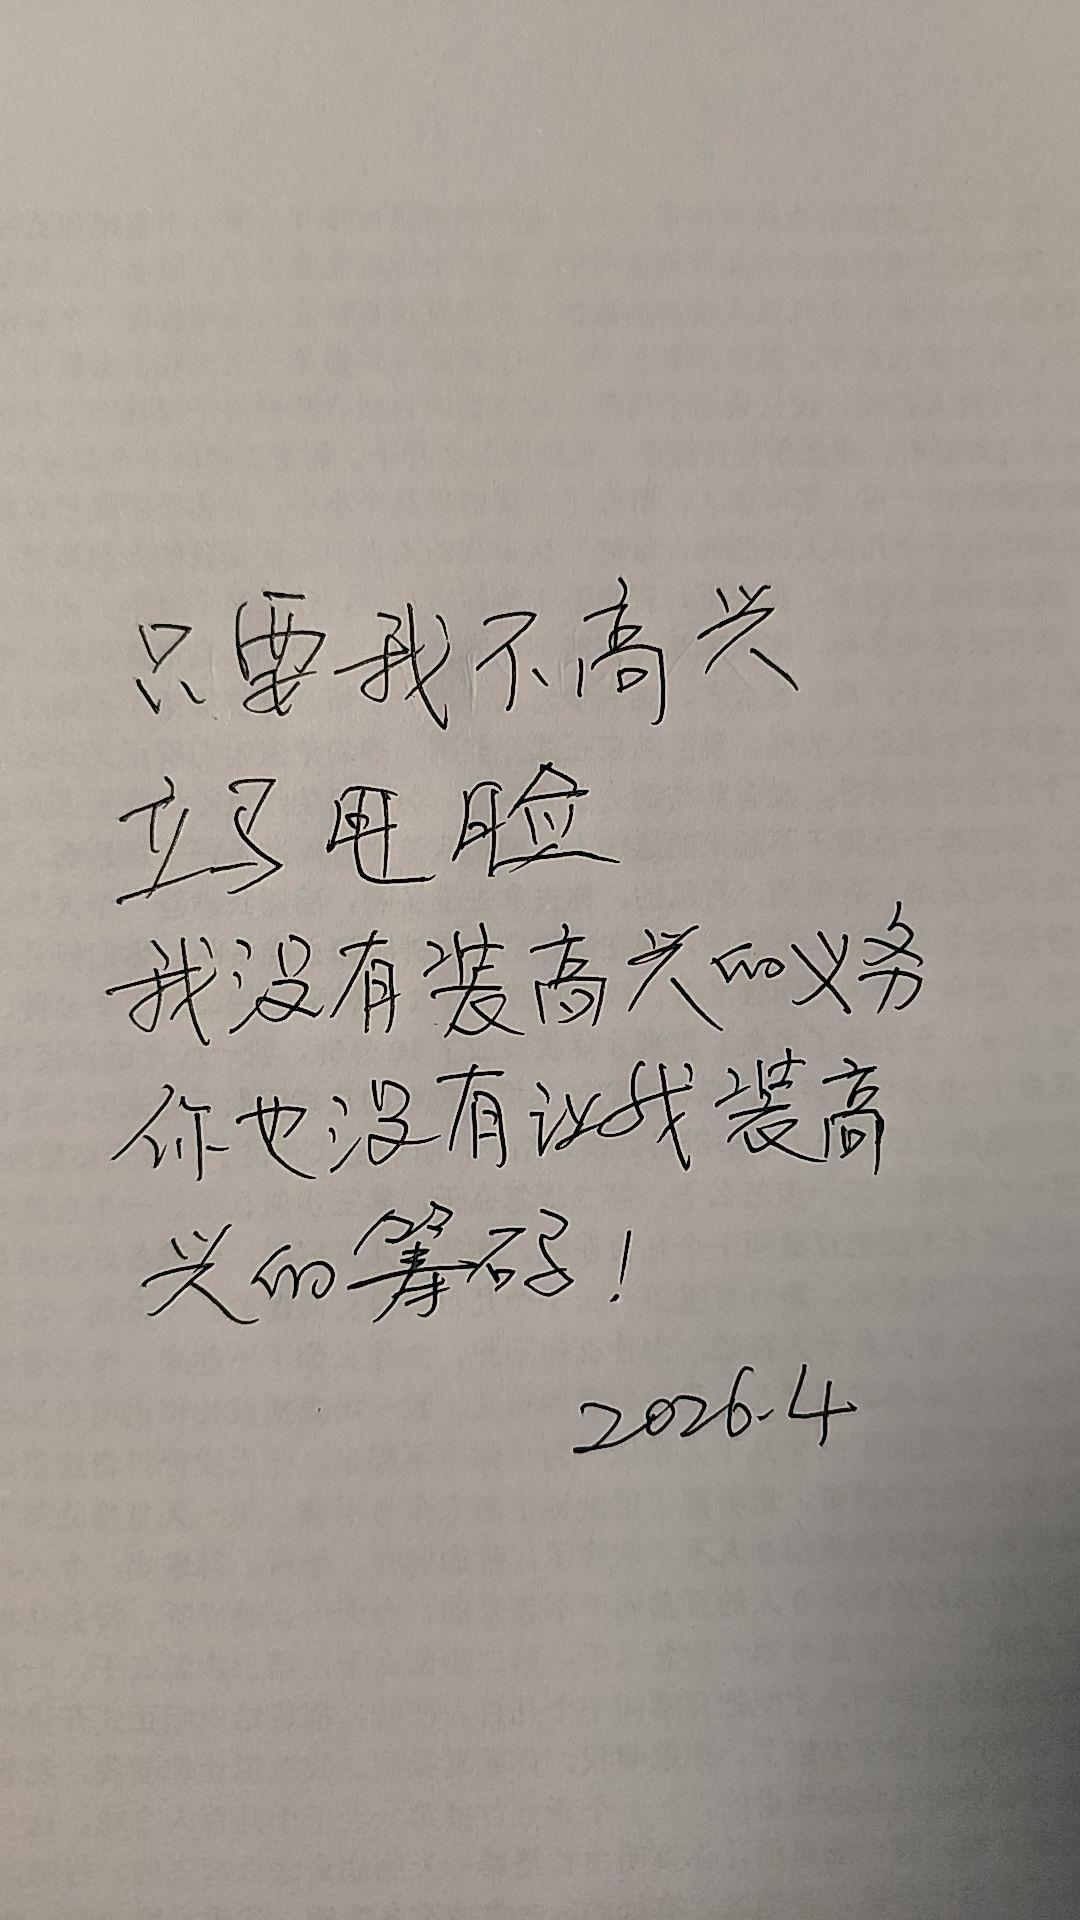 只要我不高兴
立马甩脸
我没有装高兴的义务
你也没有让我装高
兴的筹码！
2026.4